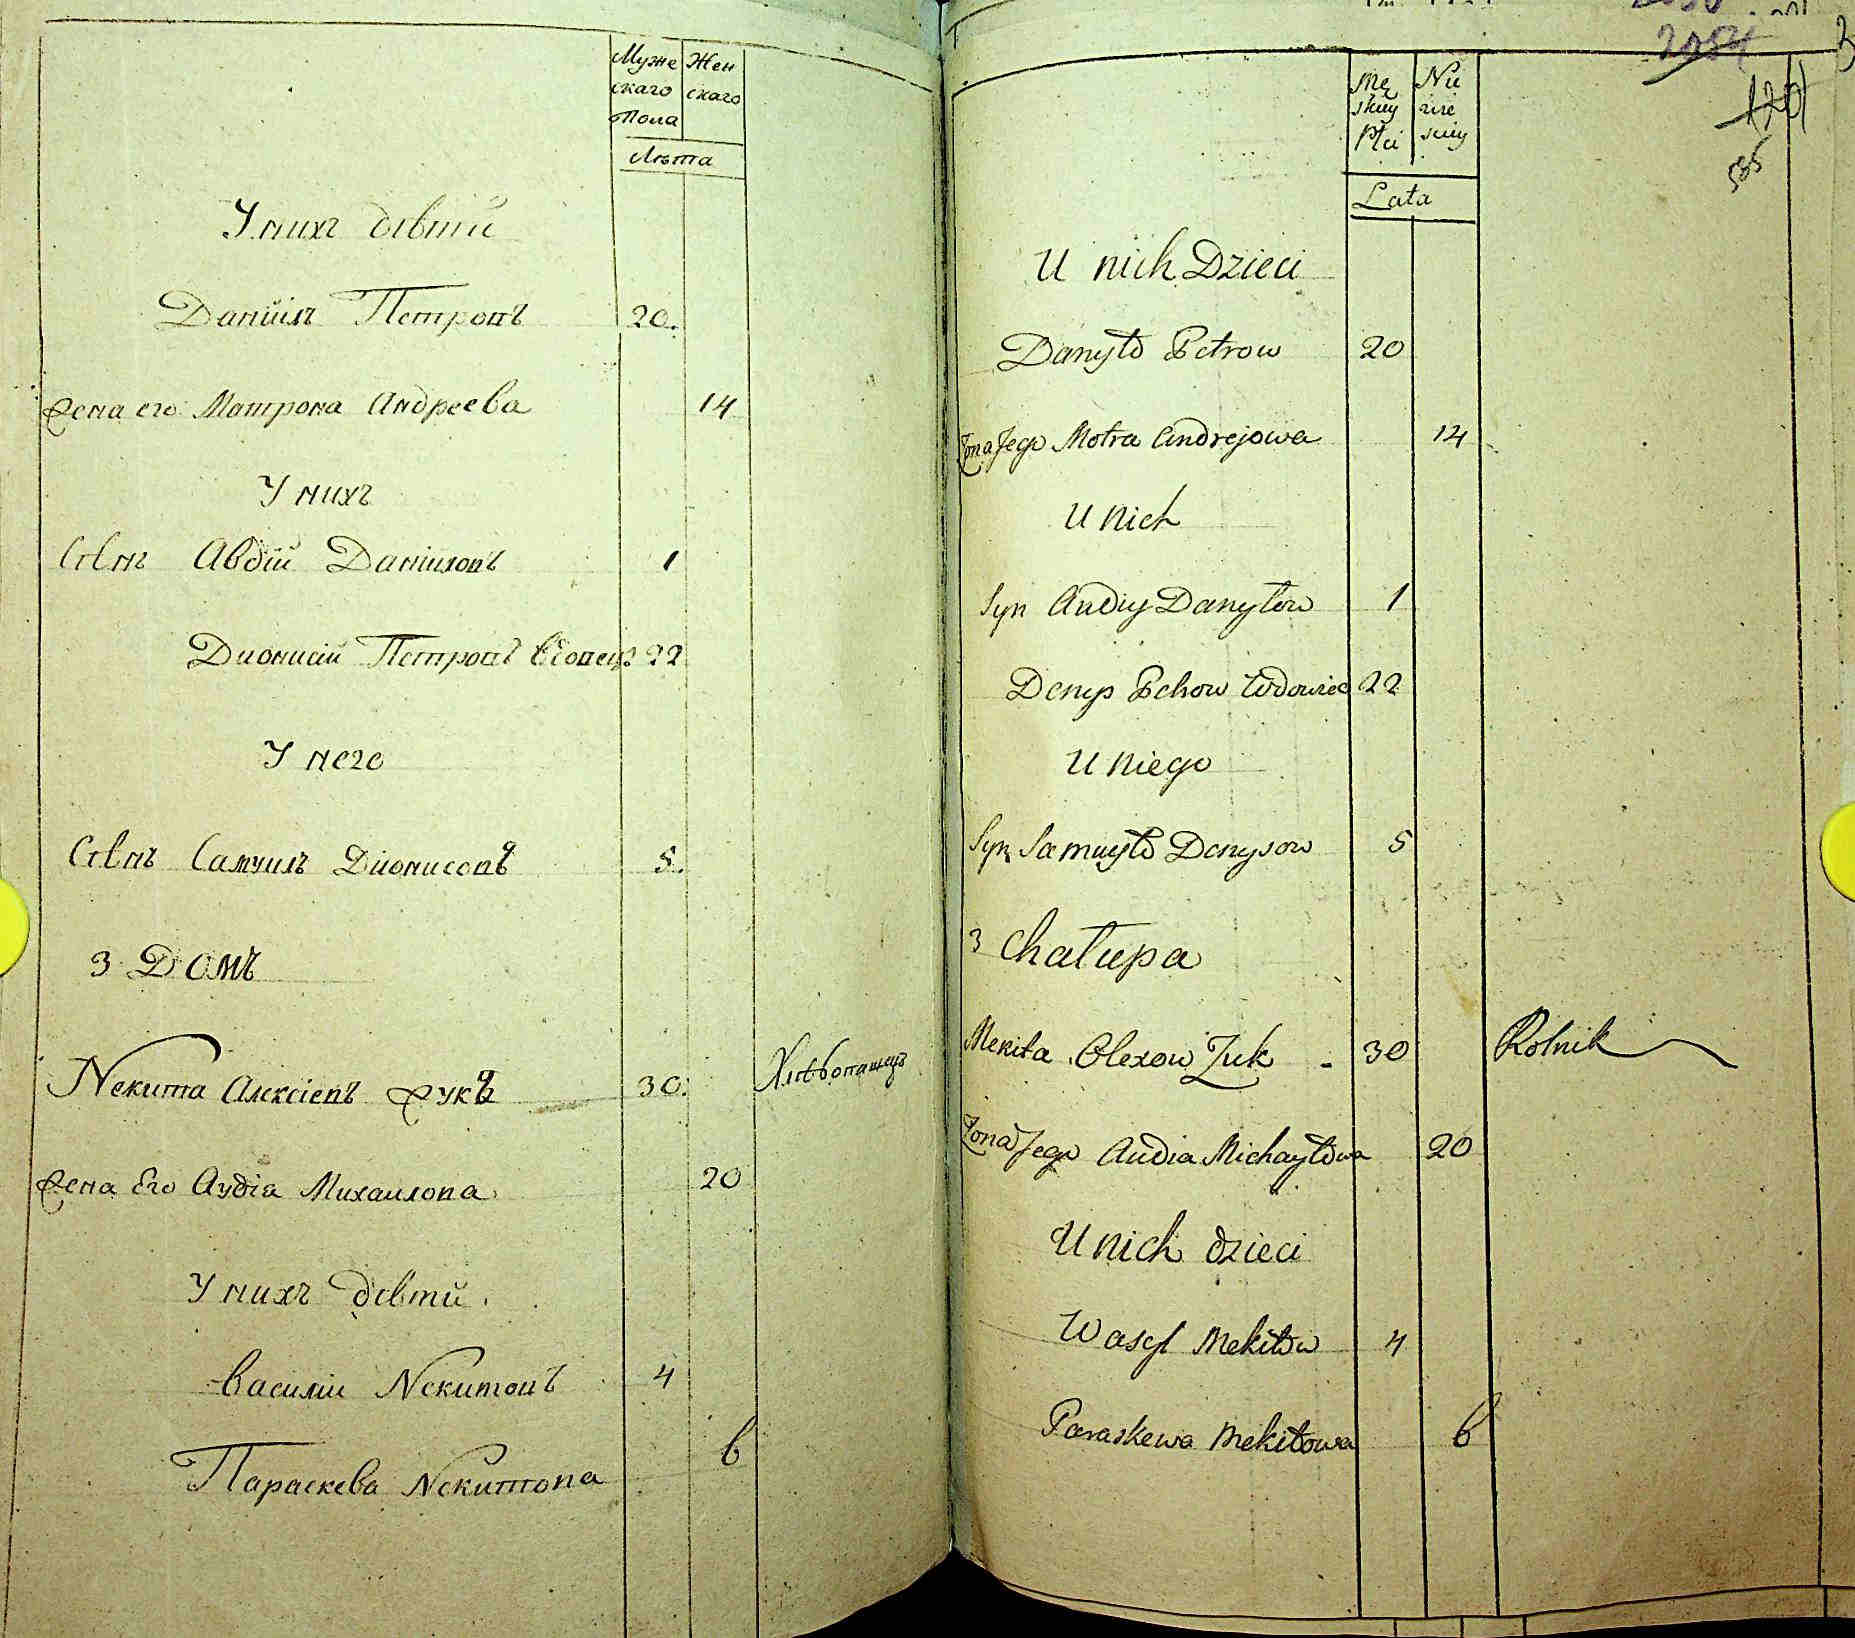 Муже Жен
скаго скаго
Пола
Лѣта
У нихъ дѣтій
Даніилъ Петровъ 20.
Жена его Матрона Андреева 14
У нихъ
Сынъ Авдій Даніиловъ 1
Дионисій Петровъ вдовецъ 22
У него
Сынъ Самуилъ Дионисовъ 5.
3 Домъ
Некита Алексіевъ Жукъ 30. Хлѣбопашецъ
Жена Его Аудіа Михаилова 20
У нихъ дѣтій
Василій Некитовъ 4
Параскева Некитова 6
2084
120
585
Mę Nie
skiey wie
Płci sciey
Lata
U nich Dzieci
Danyło Petrow 20
Żona Jego Motra Andrejowa 14
U nich
Syn Audiy Danyłow 1
Denys Petrow Wdowiec 22
U niego
Syn Samuyło Denysow 5
3 Chałupa
Mekita Olexow Żuk - 30 Rolnik
Żona Jego Audia Michayłowa 20
U nich dzieci
Wasyl Mekitow 4
Paraskewa Mekitowa 6